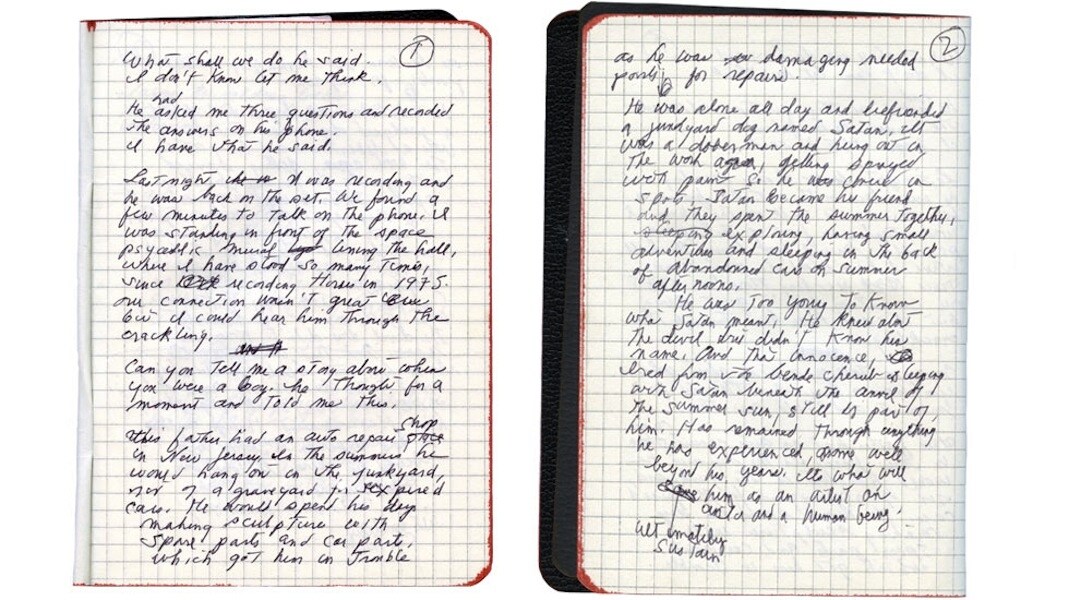 1
What shall we do he said.
I don't know let me think.
had
He asked me three questions and recorded
the answers on his phone.
I have what he said.
Last night it was recording and
he was back on the set. We found a
few minutes to talk on the phone. I
was standing in front of the space
mural lining the hall,
where I have stood so many times,
since recording Horses in 1975.
our connection wasn't great
but I could hear him through the
crackling.
Can you tell me a story about when
you were a boy. he thought for a
moment and told me this.
shop
His father had an auto repair
in New Jersey. In the summers he
would hang out in the junkyard,
sort of a graveyard for expired
cars. He would spend his day
making sculpture with
spare parts and car parts,
which got him in trouble
2
as he was damaging needed
parts for repairs.
He was alone all day and befriended
a junkyard dog named Satan. It
was a doberman and hung out in
the work area, getting sprayed
with paint so he was cover in
spots. Satan became his friend
and they spent the summer together,
exploring, having small
adventures and sleeping in the back
of abandoned cars on summer
afternoons.
He was too young to know
what Satan meant. He knew about
the devil but didn't know his
name. And that innocence,
bred from the blonde cherub sleeping
with Satan beneath the anvil of
the summer sun, still is part of
him. Has remained through anything
he has experienced, some well
beyond his years. Its what will
him as an artist an
actor and a human being.
ultimately
sustain